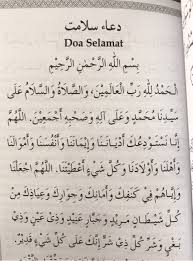 دعاء سلامت
Doa Selamat
بِسْمِ اللَّهِ الرَّحْمَٰنِ الرَّحِيْمِ
اَلْحَمْدُ لِلَّهِ رَبِّ الْعَالَمِيْنَ، وَالصَّلَاةُ وَالسَّلَامُ عَلَى
سَيِّدِنَا مُحَمَّدٍ وَعَلَى آلِهِ وَصَحْبِهِ أَجْمَعِيْنَ، اَللَّهُمَّ
إِنَّا نَسْتَوْدِعُكَ أَدْيَانَنَا وَإِيْمَانَنَا وَأَنْفُسَنَا وَأَمْوَالَنَا
وَأَهْلَنَا وَأَوْلَادَنَا وَكُلَّ شَيْءٍ أَعْطَيْتَنَا، اَللَّهُمَّ اجْعَلْنَا
وَإِيَّاهُمْ فِيْ كَنَفِكَ وَأَمَانِكَ وَجِوَارِكَ وَعِيَاذِكَ مِنْ
كُلِّ شَيْطَانٍ مَرِيْدٍ وَجَبَّارٍ عَنِيْدٍ وَذِيْ عَيْنٍ وَذِيْ
بَغْيٍ وَشَرِّ كُلِّ ذِيْ شَرٍّ إِنَّكَ عَلَى كُلِّ شَيْءٍ قَدِيْرٌ.